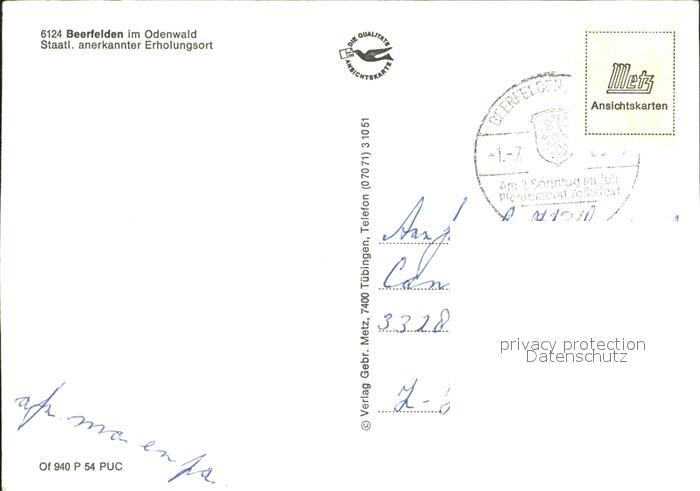 6124 Beerfelden im Odenwald
Staatl. anerkannter Erholungsort
DIE QUALITÄTS
ANSICHTSKARTE
Metz
Ansichtskarten
BEERFELDEN
-1.-7.
Am 2. Sonntag im Juli
Pferdemarkt Volksfest
© Verlag Gebr. Metz, 7400 Tübingen, Telefon (07071) 31051
3328
privacy protection
Datenschutz
ma en pa
Of 940 P 54 PUC